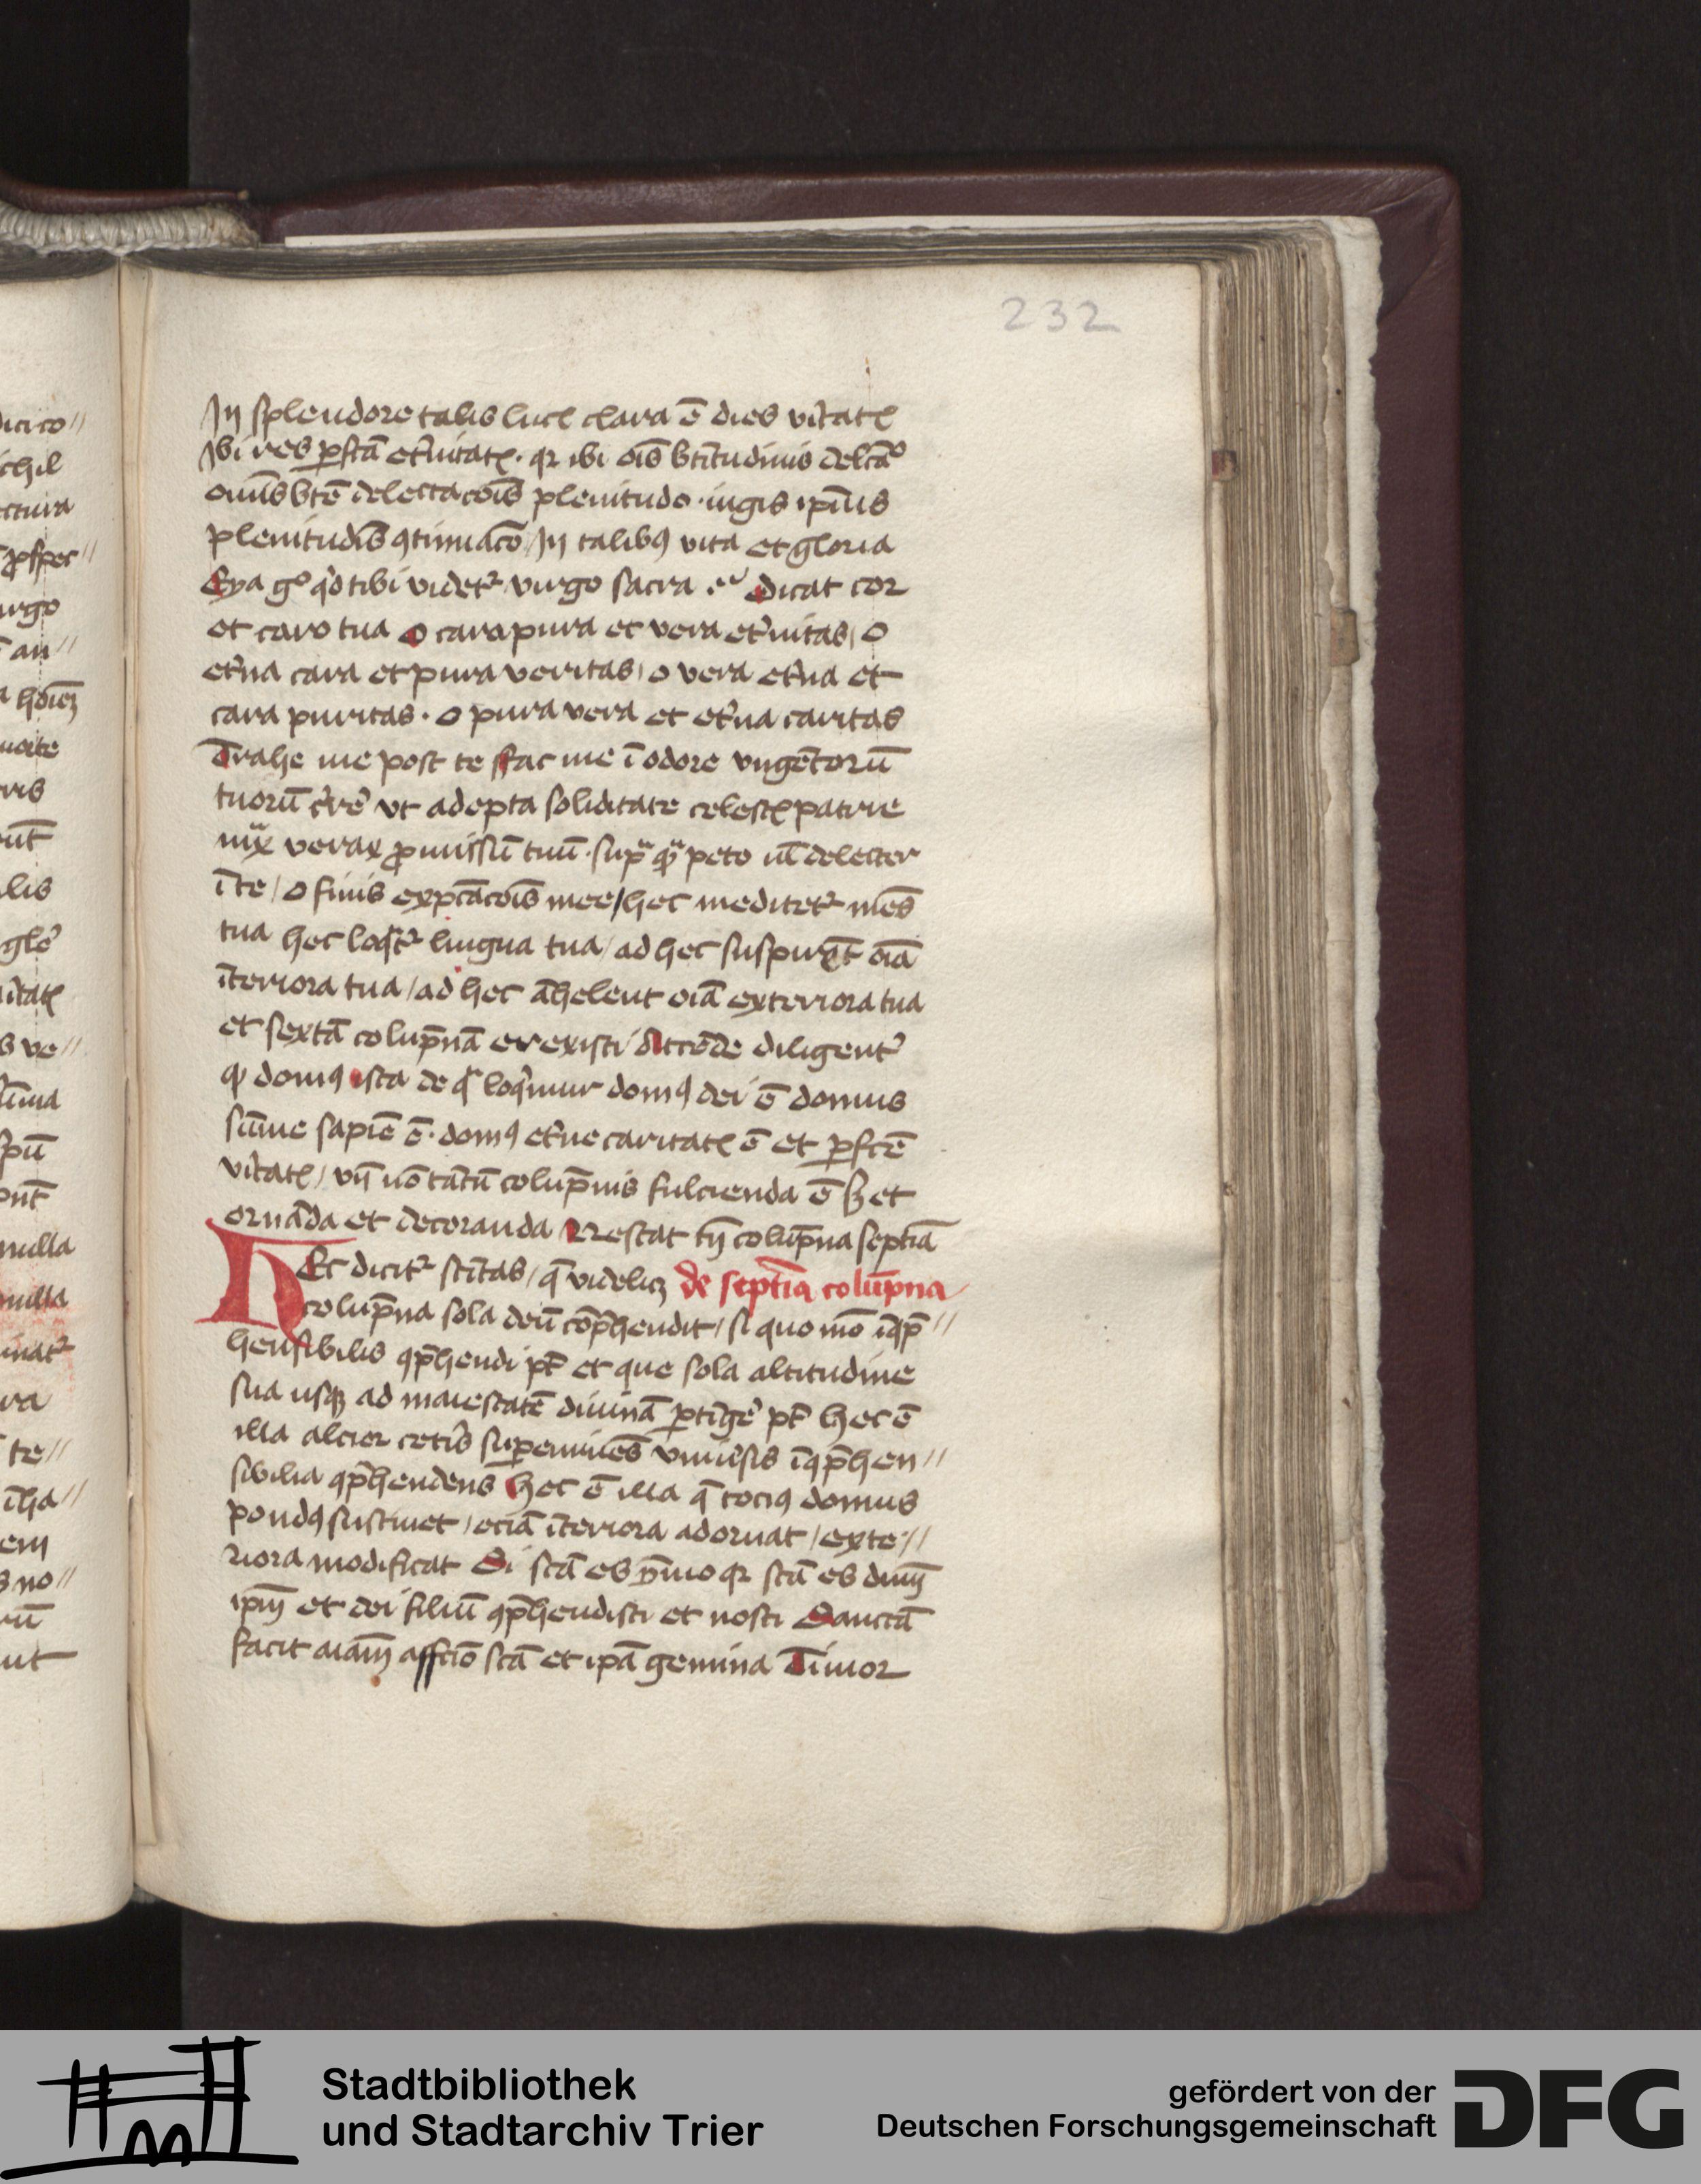 232
In splendore talis lucꝭ clara ē dies vͥtatꝭ
Ibi res ꝑfcā et͛nitatꝭ · qꝛ ibi oīs btītudinis delcāᵒ
omīs btē delectacōis plenitudo · iugis ip̄ius
plenitudīs ꝯtinuacō / In talibꝰ vita et gloria
Eya gᵒ qͥd tibi videtᷣ virgo sacra · Dicat cor
et caro tua O cara pura et vera et͛nitas / O
et͛na cara et pura veritas / o vera et͛na et
cara puritas · O pura vera et et͛na caritas
Trahe me post te fac me ī odore vngētorū
tuorū vt adepta soliditate celestꝭ patrie
verax ꝓmissū tuū · supᵃ qͣ peto delecter
ī te / O finis expcācōis mee / hec meditetᷣ mēs
tua hec loqͣtᷣ lingua tua / ad hec suspirēt oīa
īteriora tua / ad hec āhelent oīa exteriora tua
et sextā colup̄nā erexisti Attēde diligent͛
ꝙ domꝰ ista de qͣ loqͥmur domꝰ dei ē domus
sūme sapiē ē · domꝰ et͛ne caritatꝭ ē et ꝑfcē
vͥtatꝭ / vn̄ nō tātū colup̄nis fulcienda ē sꝫ et
ornāda et decoranda Restat tn̄ colup̄na septīa
Hec dicitᷣ scītas / q̄ videlicꝫ de septīa colūpna
colup̄na sola deū cōp̄hendit / si quo mō īꝯp̄ //
hensibilis ꝯp̄hendi pt̄ et que sola altitudine
sua usqꝫ ad maiestatē diuinā ꝑtīge͛ pt̄ hec ē
illa alcior cet͛is suꝑeminēs vniu͛sis īꝯp̄hen //
sibilia ꝯp̄hendens hec ē illa q̄ tociꝰ domus
pondꝰ sustinet / eciā īteriora adornat / exte //
riora modificat Si scā es p̄mo qꝛ scā es dūm
ip̄m et dei filiū ꝯp̄hendisti et nosti Sanctā
facit aīam affcīo scā et ip̄a gemina Timor
Stadtbibliothek
und Stadtarchiv Trier
gefördert von der
Deutschen Forschungsgemeinschaft
DFG